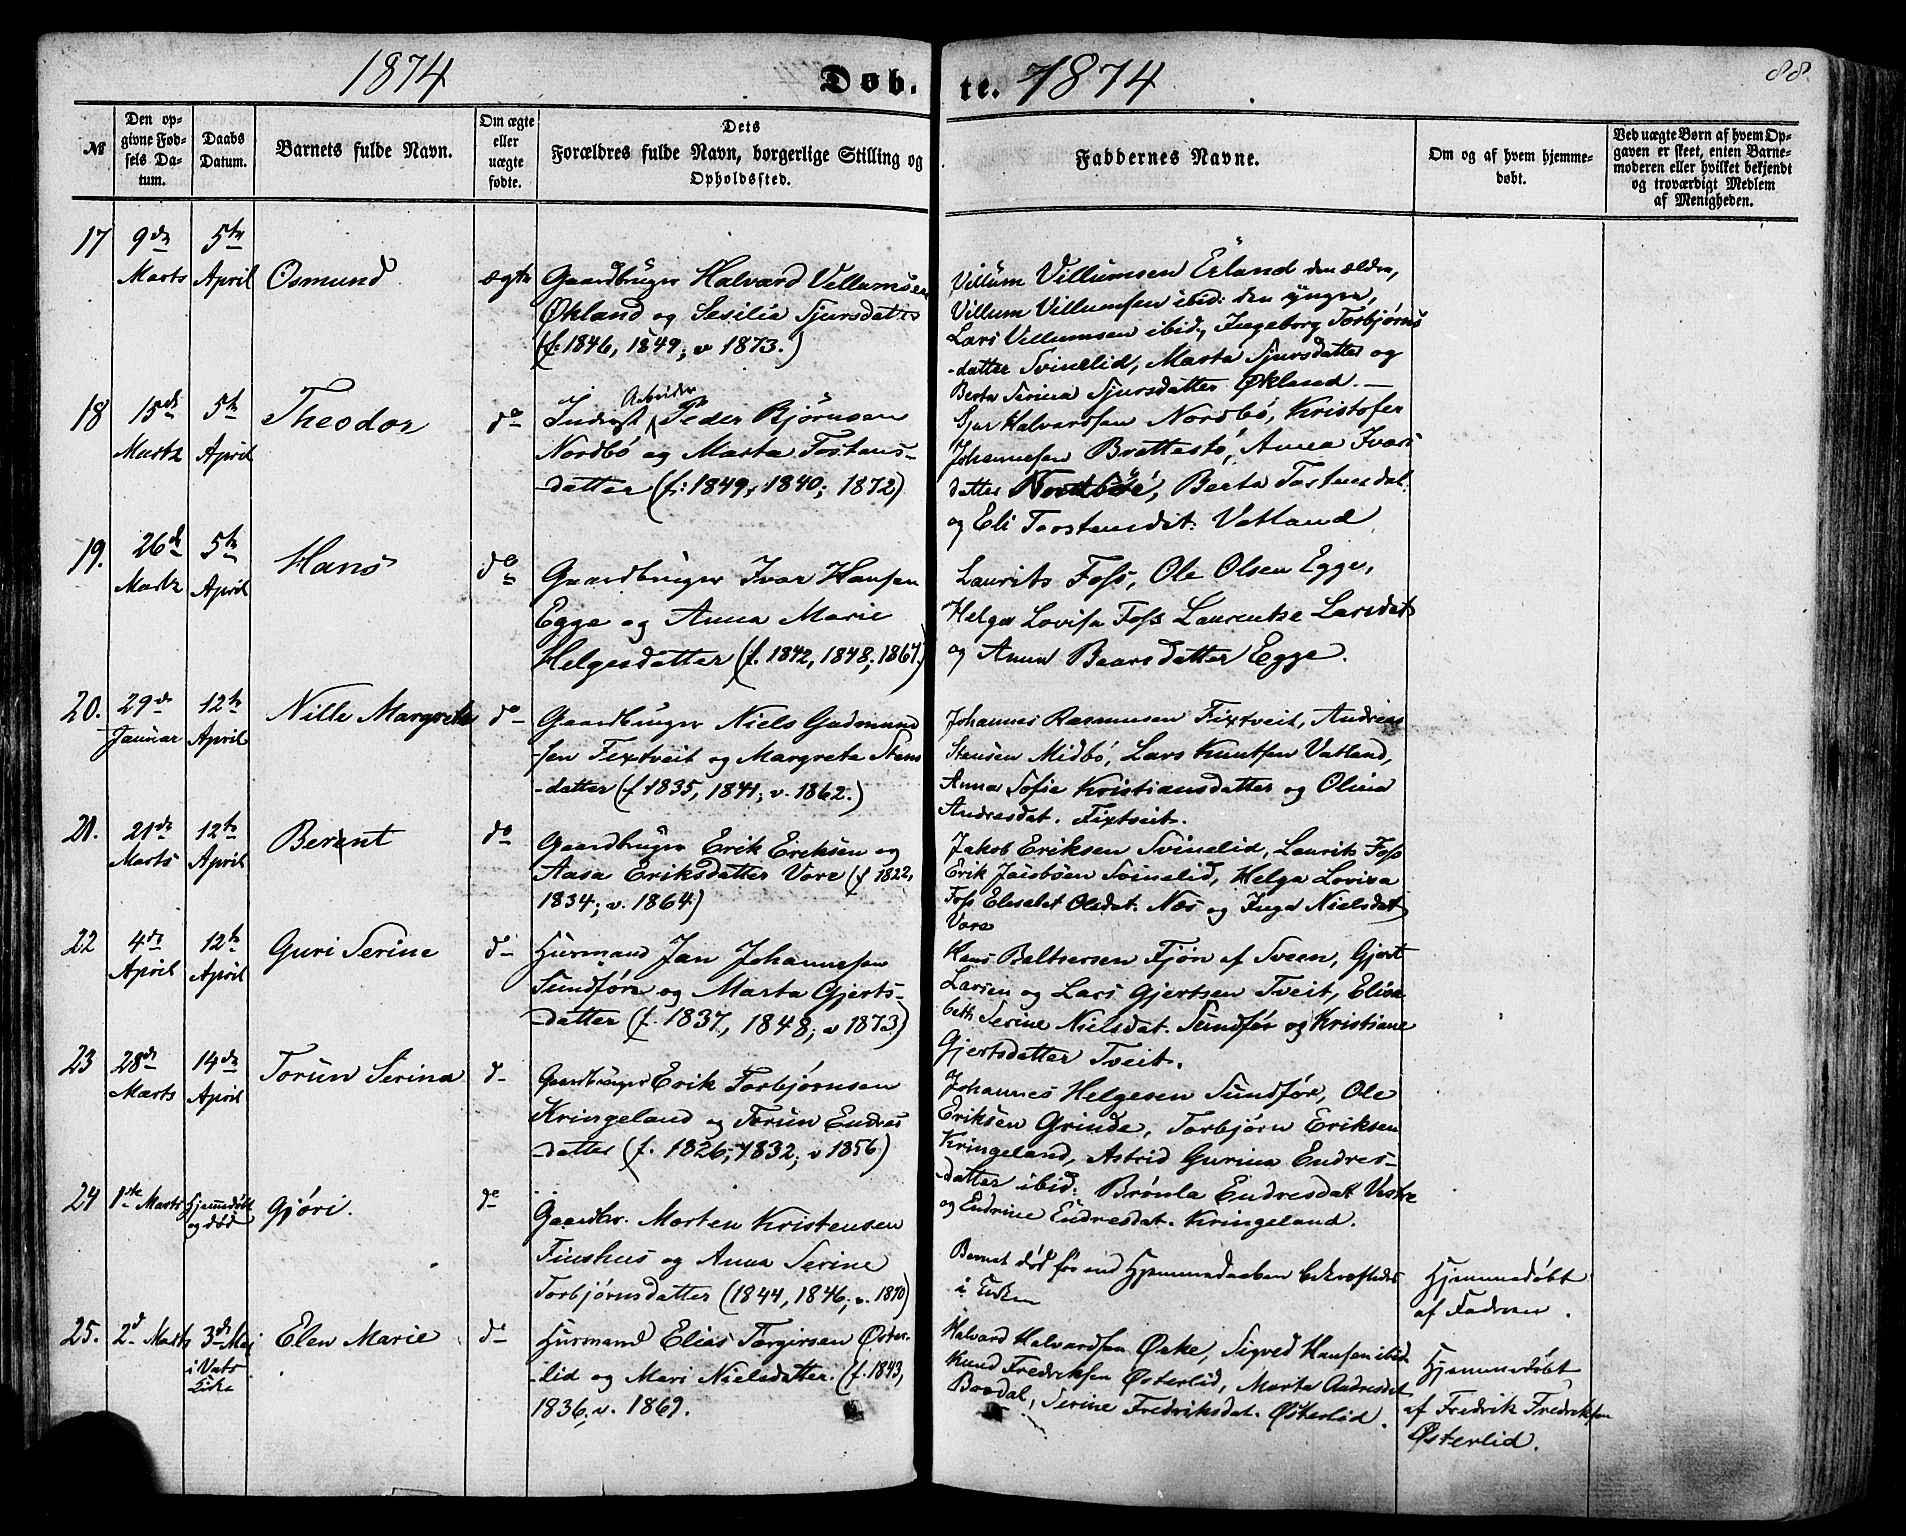 1874 Døb. te. 1874 88.
№
Den op-
givne Fød-
sels Da-
tum.
Daabs
Datum.
Barnets fulde Navn.
Om ægte
eller
uægte
fødte.
Dets
Forældres fulde Navn, borgerlige Stilling og
Opholdssted.
Faddernes Navne.
Om og af hvem hjemme-
døbt.
Ved uægte Børn af hvem Op-
gaven er skeet, enten Barne-
moderen eller hvilket bekjendt
og troværdigt Medlem
af Menigheden.
17 9de Marts 5te April Osmund ægte
Gaardbruger Halvard Villumsen
Økland og Sesilia Sjursdatter
(f. 1846, 1849; v 1873.)
Villum Villumsen Erland den ældre,
Villum Villumsen ibid: den yngre,
Lars Villumsen ibid, Ingeborg Torbjørns
-datter Svinelid, Marta Sjursdatter og
Berta Serina Sjursdatter Økland. —
18 15de Marts 5te April Theodor do
Inderst Arbeider Peder Bjørnsen
Nordbø og Marta Tostens-
-datter (f: 1849, 1840; 1872)
Sjur Halvardsen Nordbø, Kristofer
Johannesen Brattestø, Anna Ivars
datter Nordbøe, Berta Tostensdat.
og Eli Torstensdt. Vatland
19. 26de Marts 5te April Hans do
Gaardbruger Ivar Hansen
Egge og Anna Marie
Helgesdatter (f. 1842, 1848; 1867.)
Laurits Foss, Ole Olsen Egge,
Helga Lovisa Foss Laurentse Larsdat
og Anna Baarsdatter Egge.
20. 29de Januar 12te April Nille Margrete do
Gaardbruger Niels Gudmund
-sen Fixtveit og Margreta Stens
-datter (f 1835, 1841; v. 1862.)
Johannes Rasmussen Fixtveit, Andreas
Stensen Midbø, Lars Knutsen Vatland,
Anna Sofie Kristiansdatter og Olina
Andresdat. Fixtveit.
21. 21de Marts 12te April Berent do
Gaardbruger Erik Eriksen og
Aasa Eriksdatter Vore (f 1822,
1834; v. 1864)
Jakob Eriksen Svinelid, Laurits Foss
Erik Jacobsen Svinelid, Helga Lovisa
Foss Elesabet Olsdat. Næs og Inga Nielsdat
Vore
22 4de April 12te April Guri Serine do
Husmand Jan Johannesen
Sundføre og Marta Gjerts-
-datter (f. 1837, 1848; v 1873)
Hans Baltsersen Fjøn af Sveen, Gjert
Larsen og Lars Gjertsen Tveit, Elisa
beth Serine Nielsdat. Sundfør og Kristiane
Gjertsdatter Tveit.
23 28de Marts 14de April Torun Serina do
Gaardbruger Erik Torbjørnsen
Kringeland og Torun Endres
-datter (f. 1826, 1832; v 1856)
Johannes Helgesen Sundfør, Ole
Eriksen Grinde, Torbjørn Eriksen
Kringeland, Astrid Gurina Endres-
-datter ibid: Brønla Endresdat Vestre
og Endrine Endresdat. Kringeland.
24 1ste Marts Hjemmedøbt og død Gjøri. do
Gaardbr. Morten Kristensen
Finshus og Anna Serine
Torbjørnsdatter (1844, 1846; v. 1870)
Barnet død før end Hjemmedaaben bekræftedes
i Kirken
Hjemmedøbt
af Faderen.
25. 2d Marts 3de Mai i Vats Kirke Elen Marie do
Husmand Elias Torgirsen Øster-
-lid og Mari Nielsdatter. (f. 1843,
1836; v. 1869.
Halvard Halvardsen Øvke, Sigved Hansen ibid
Knud Fredriksen Østerlid, Marta Andresdat
Bordal, Serine Fredriksdat. Østerlid.
Hjemmedøbt
af Fredrik Fredriksen
Østerlid.